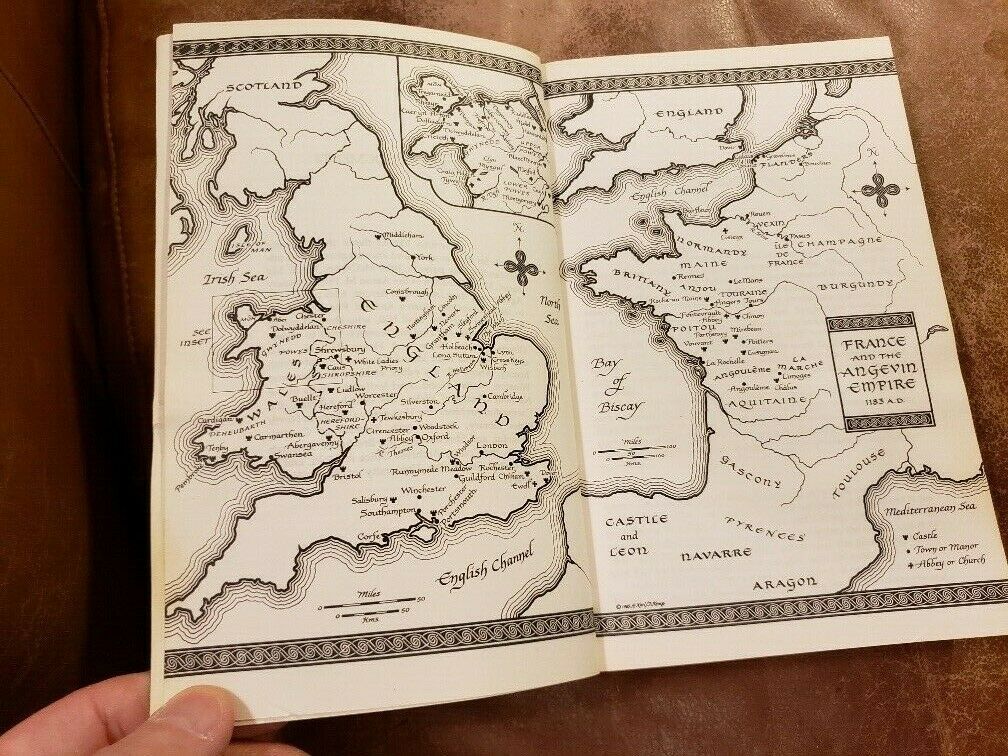 SCOTLAND
ISLE OF
MAN
Irish Sea
SEE
INSET
Middleham
York
Conisbrough
Lincoln
North
Sea
ENGLAND
Chester
CHESHIRE
Dolwyddelan
GWYNEDD
POWYS
Shrewsbury
White Ladies
Priory
Caus
SHROPSHIRE
WALES
Holbeach
Long Sutton
Cross Keys
Wisbech
Ludlow
Worcester
Buellt
Hereford
HEREFORD-
SHIRE
Silverston
Cambridge
Cardigan
DEHEUBARTH
Tewkesbury
Cirencester
Abbey
Woodstock
Oxford
Thames
Carmarthen
Abergavenny
Tenby
Swansea
London
Windsor
Runnymede Meadow
Rochester
Guildford
Chilham
Dover
Ewell
Bristol
Salisbury
Winchester
Southampton
Porchester
Portsmouth
Corfe
English Channel
Miles
0 50
0 50
Kms.
GWYNEDD
Dolwyddelan
UPPER
POWYS
LOWER
POWYS
Montgomery
ENGLAND
Dover
Gravelines
FLANDERS
Bouvines
English Channel
N
Barfleur
Rouen
VEXIN
Lisieux
Paris
ÎLE
DE
FRANCE
CHAMPAGNE
NORMANDY
MAINE
BRITTANY
Rennes
Le Mans
ANJOU
TOURAINE
BURGUNDY
Angers
Tours
Fontevrault
Abbey
Chinon
POITOU
Mirebeau
Parthenay
Vouvant
Poitiers
Lusignan
La Rochelle
ANGOULÊME
LA
MARCHE
Limoges
Angoulême
Châlus
AQUITAINE
FRANCE
AND THE
ANGEVIN
EMPIRE
1183 A.D.
Bay
of
Biscay
Miles
0 50 100
0 100
Kms.
GASCONY
TOULOUSE
CASTILE
and
LEON
PYRENEES
NAVARRE
ARAGON
Mediterranean Sea
Castle
Town or Manor
Abbey or Church